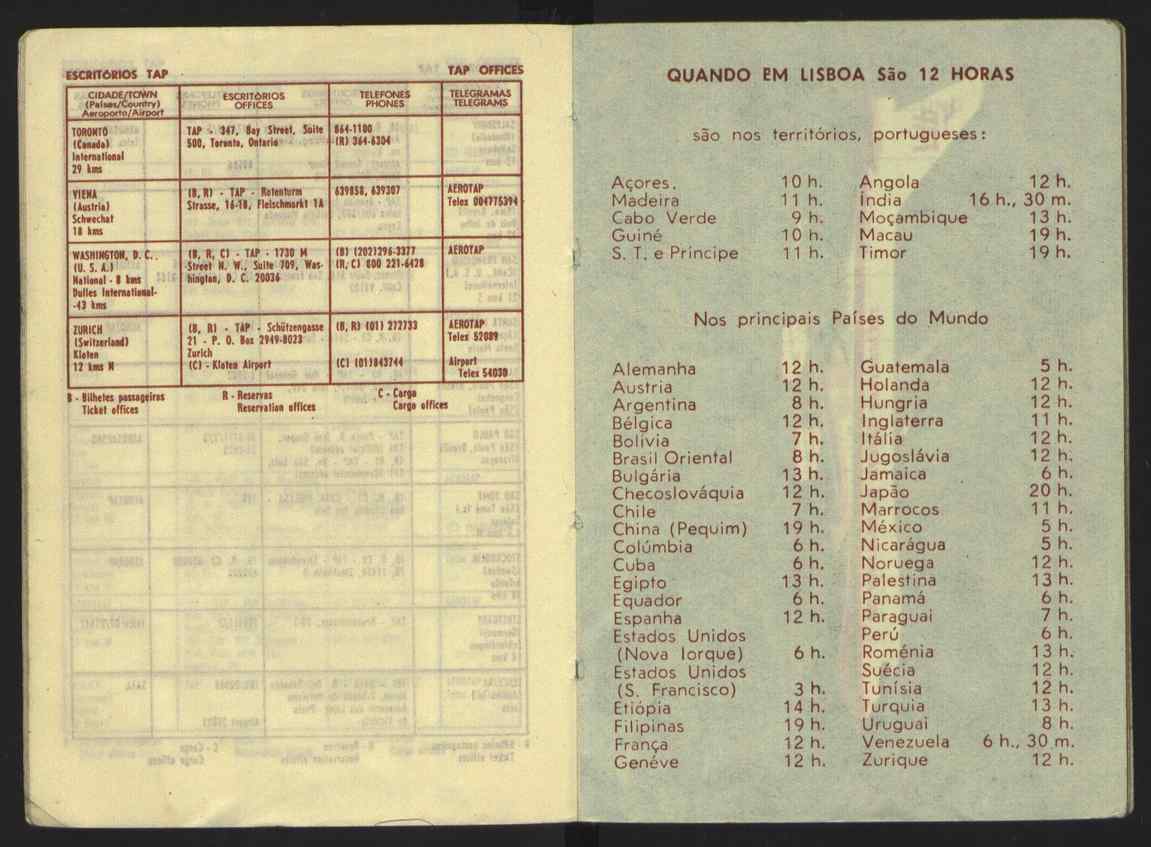 ESCRITÓRIOS TAP
TAP OFFICES
CIDADE/TOWN
(Países/Country)
Aeroporto/Airport
ESCRITÓRIOS
OFFICES
TELEFONES
PHONES
TELEGRAMAS
TELEGRAMS
TORONTO
(Canada)
International
29 kms
TAP - 347, Bay Street, Suite
500, Toronto, Ontario
864-1100
(R) 364-6304
VIENA
(Austria)
Schwechat
18 kms
(B, R) - TAP - Rotenturm
Strasse, 16-18, Fleischmarkt 1A
639858, 639307
AEROTAP
Telex 004775394
WASHINGTON, D. C.
(U. S. A.)
National - 8 kms
Dulles International-
-43 kms
(B, R, C) - TAP - 1730 M
Street N. W., Suite 709, Was-
hington, D. C. 20036
(B) (202)296-3377
(R, C) 800 221-6428
AEROTAP
ZURICH
(Switzerland)
Kloten
12 kms N
(B, R) - TAP - Schützengasse
21 - P. O. Box 2949-8023
Zurich
(C) - Kloten Airport
(B, R) (01) 272733
(C) (01)843744
AEROTAP
Telex 52089
Airport
Telex 54030
B - Bilhetes passageiros
Ticket offices
R - Reservas
Reservation offices
C - Carga
Cargo offices
QUANDO EM LISBOA São 12 HORAS
são nos territórios, portugueses:
Açores. 10 h.
Madeira 11 h.
Cabo Verde 9 h.
Guiné 10 h.
S. T. e Príncipe 11 h.
Angola 12 h.
Índia 16 h., 30 m.
Moçambique 13 h.
Macau 19 h.
Timor 19 h.
Nos principais Países do Mundo
Alemanha 12 h.
Austria 12 h.
Argentina 8 h.
Bélgica 12 h.
Bolívia 7 h.
Brasil Oriental 8 h.
Bulgária 13 h.
Checoslováquia 12 h.
Chile 7 h.
China (Pequim) 19 h.
Colúmbia 6 h.
Cuba 6 h.
Egipto 13 h.
Equador 6 h.
Espanha 12 h.
Estados Unidos
(Nova Iorque) 6 h.
Estados Unidos
(S. Francisco) 3 h.
Etiópia 14 h.
Filipinas 19 h.
França 12 h.
Genéve 12 h.
Guatemala 5 h.
Holanda 12 h.
Hungria 12 h.
Inglaterra 11 h.
Itália 12 h.
Jugoslávia 12 h.
Jamaica 6 h.
Japão 20 h.
Marrocos 11 h.
México 5 h.
Nicarágua 5 h.
Noruega 12 h.
Palestina 13 h.
Panamá 6 h.
Paraguai 7 h.
Perú 6 h.
Roménia 13 h.
Suécia 12 h.
Tunísia 12 h.
Turquia 13 h.
Uruguai 8 h.
Venezuela 6 h., 30 m.
Zurique 12 h.